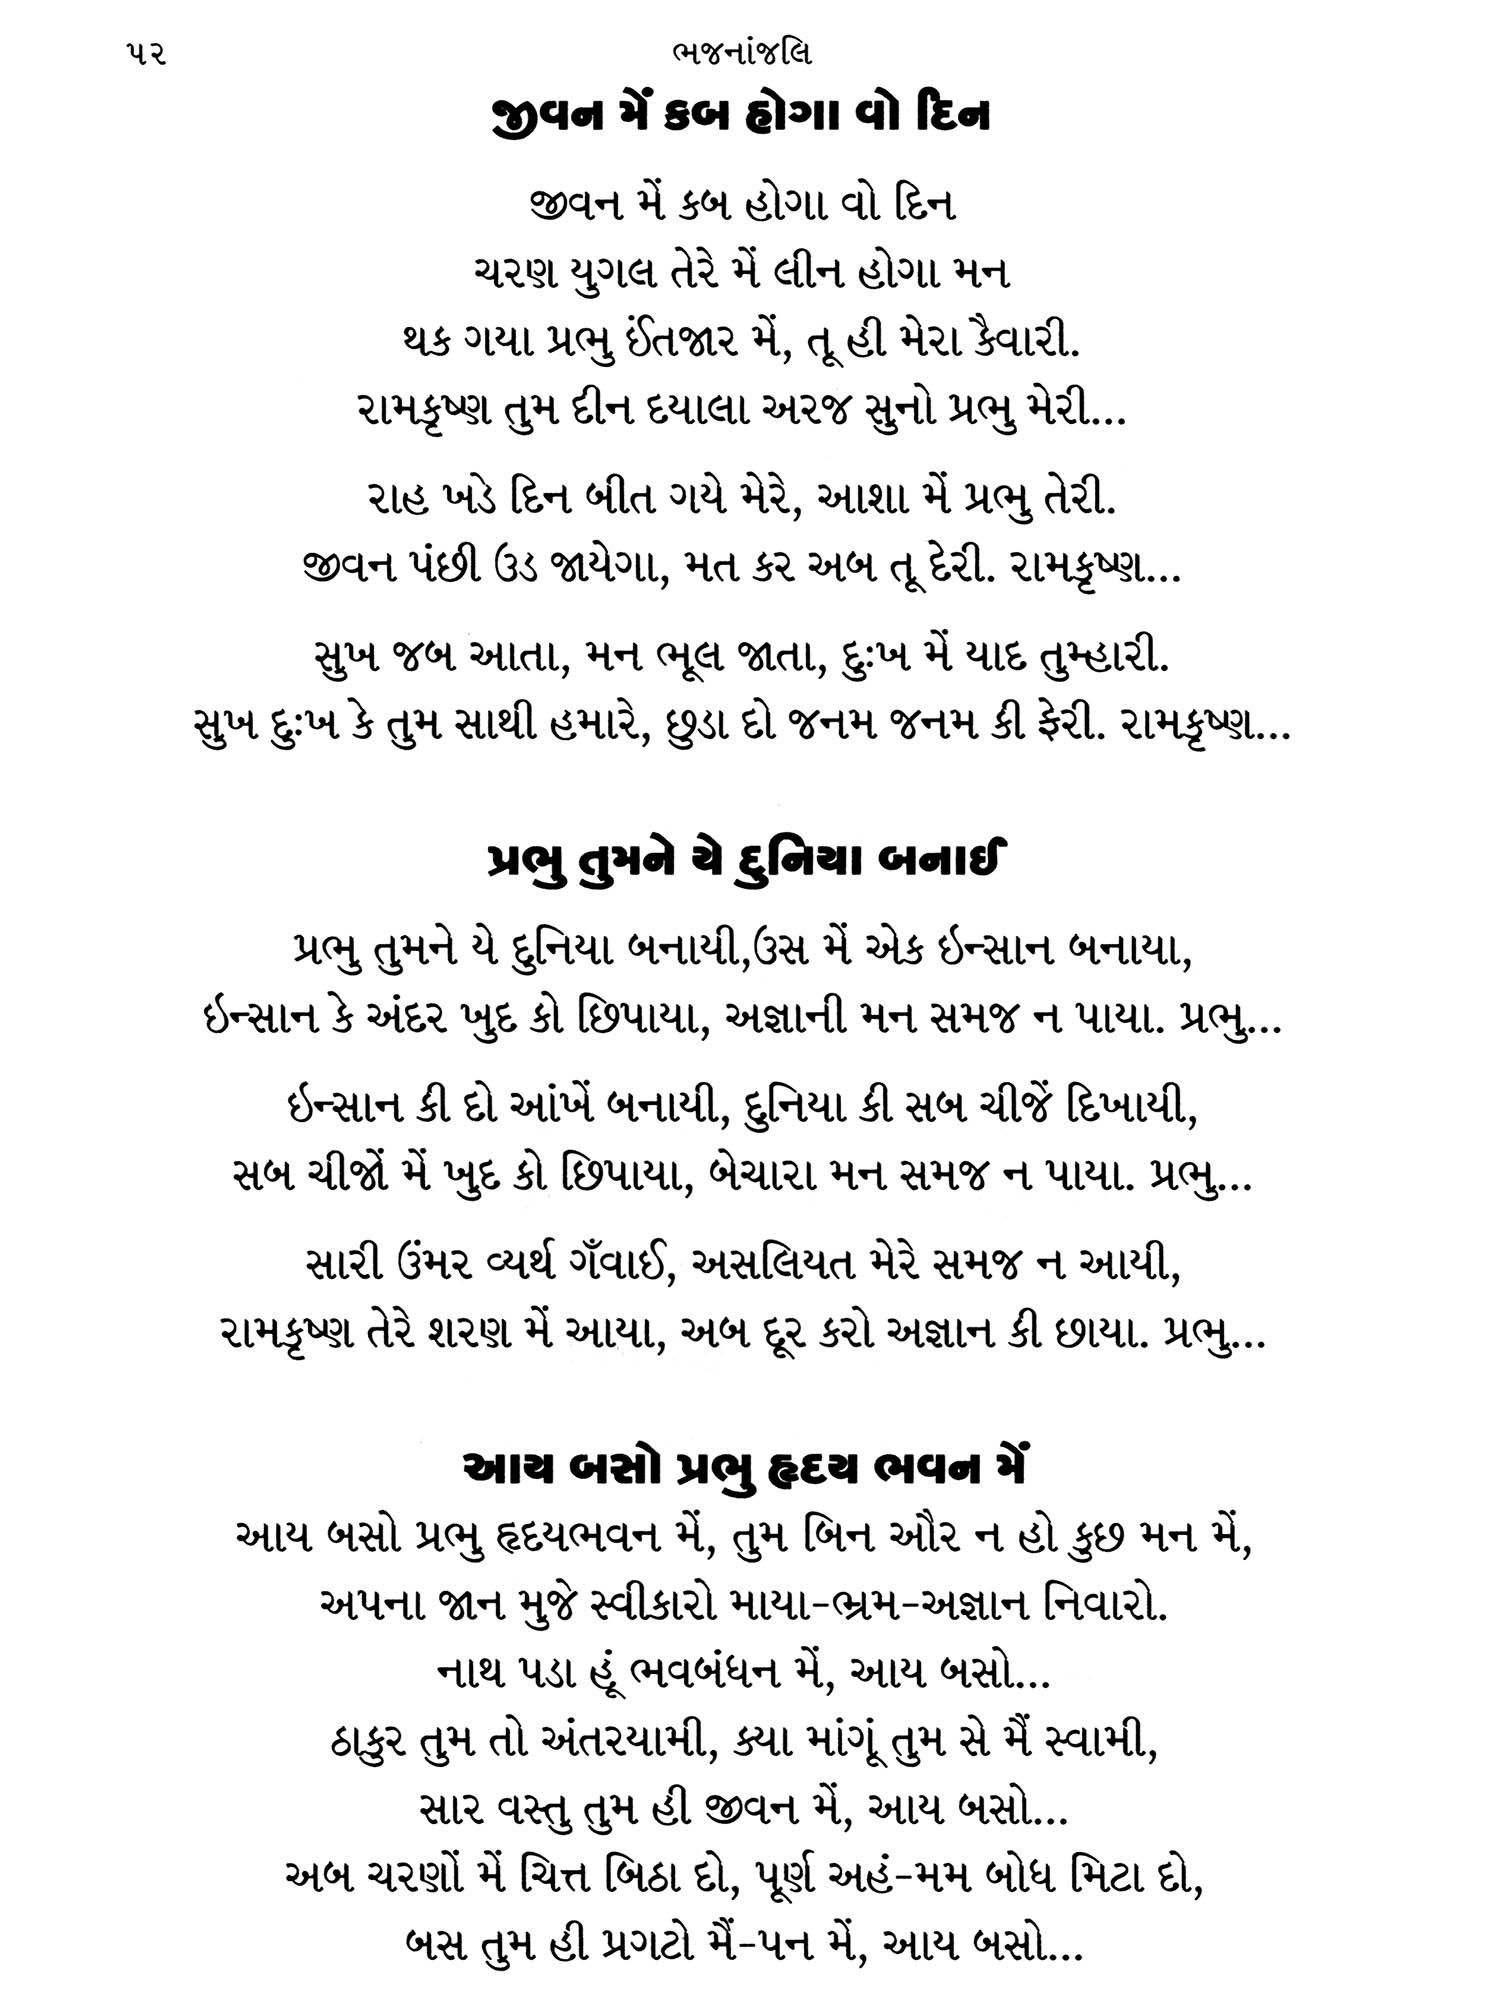 ૫૨
ભજનાંજલિ
જીવન મેં કબ હોગા વો દિન
જીવન મેં કબ હોગા વો દિન
ચરણ યુગલ તેરે મેં લીન હોગા મન
થક ગયા પ્રભુ ઈંતજાર મેં, તૂ હી મેરા કૈવારી.
રામકૃષ્ણ તુમ દીન દયાલા અરજ સુનો પ્રભુ મેરી...
રાહ ખડે દિન બીત ગયે મેરે, આશા મેં પ્રભુ તેરી.
જીવન પંછી ઉડ જાયેગા, મત કર અબ તૂ દેરી. રામકૃષ્ણ...
સુખ જબ આતા, મન ભૂલ જાતા, દુઃખ મેં યાદ તુમ્હારી.
સુખ દુઃખ કે તુમ સાથી હમારે, છુડા દો જનમ જનમ કી ફેરી. રામકૃષ્ણ...
પ્રભુ તુમને યે દુનિયા બનાઈ
પ્રભુ તુમને યે દુનિયા બનાયી,ઉસ મેં એક ઇન્સાન બનાયા,
ઇન્સાન કે અંદર ખુદ કો છિપાયા, અજ્ઞાની મન સમજ ન પાયા. પ્રભુ...
ઇન્સાન કી દો આંખેં બનાયી, દુનિયા કી સબ ચીજેં દિખાયી,
સબ ચીજોં મેં ખુદ કો છિપાયા, બેચારા મન સમજ ન પાયા. પ્રભુ...
સારી ઉંમર વ્યર્થ ગઁવાઈ, અસલિયત મેરે સમજ ન આયી,
રામકૃષ્ણ તેરે શરણ મેં આયા, અબ દૂર કરો અજ્ઞાન કી છાયા. પ્રભુ...
આય બસો પ્રભુ હૃદય ભવન મેં
આય બસો પ્રભુ હૃદયભવન મેં, તુમ બિન ઔર ન હો કુછ મન મેં,
અપના જાન મુજે સ્વીકારો માયા-ભ્રમ-અજ્ઞાન નિવારો.
નાથ પડા હૂં ભવબંધન મેં, આય બસો...
ઠાકુર તુમ તો અંતરયામી, ક્યા માંગૂં તુમ સે મૈં સ્વામી,
સાર વસ્તુ તુમ હી જીવન મેં, આય બસો...
અબ ચરણોં મેં ચિત્ત બિઠા દો, પૂર્ણ અહં-મમ બોધ મિટા દો,
બસ તુમ હી પ્રગટો મૈં-પન મેં, આય બસો...